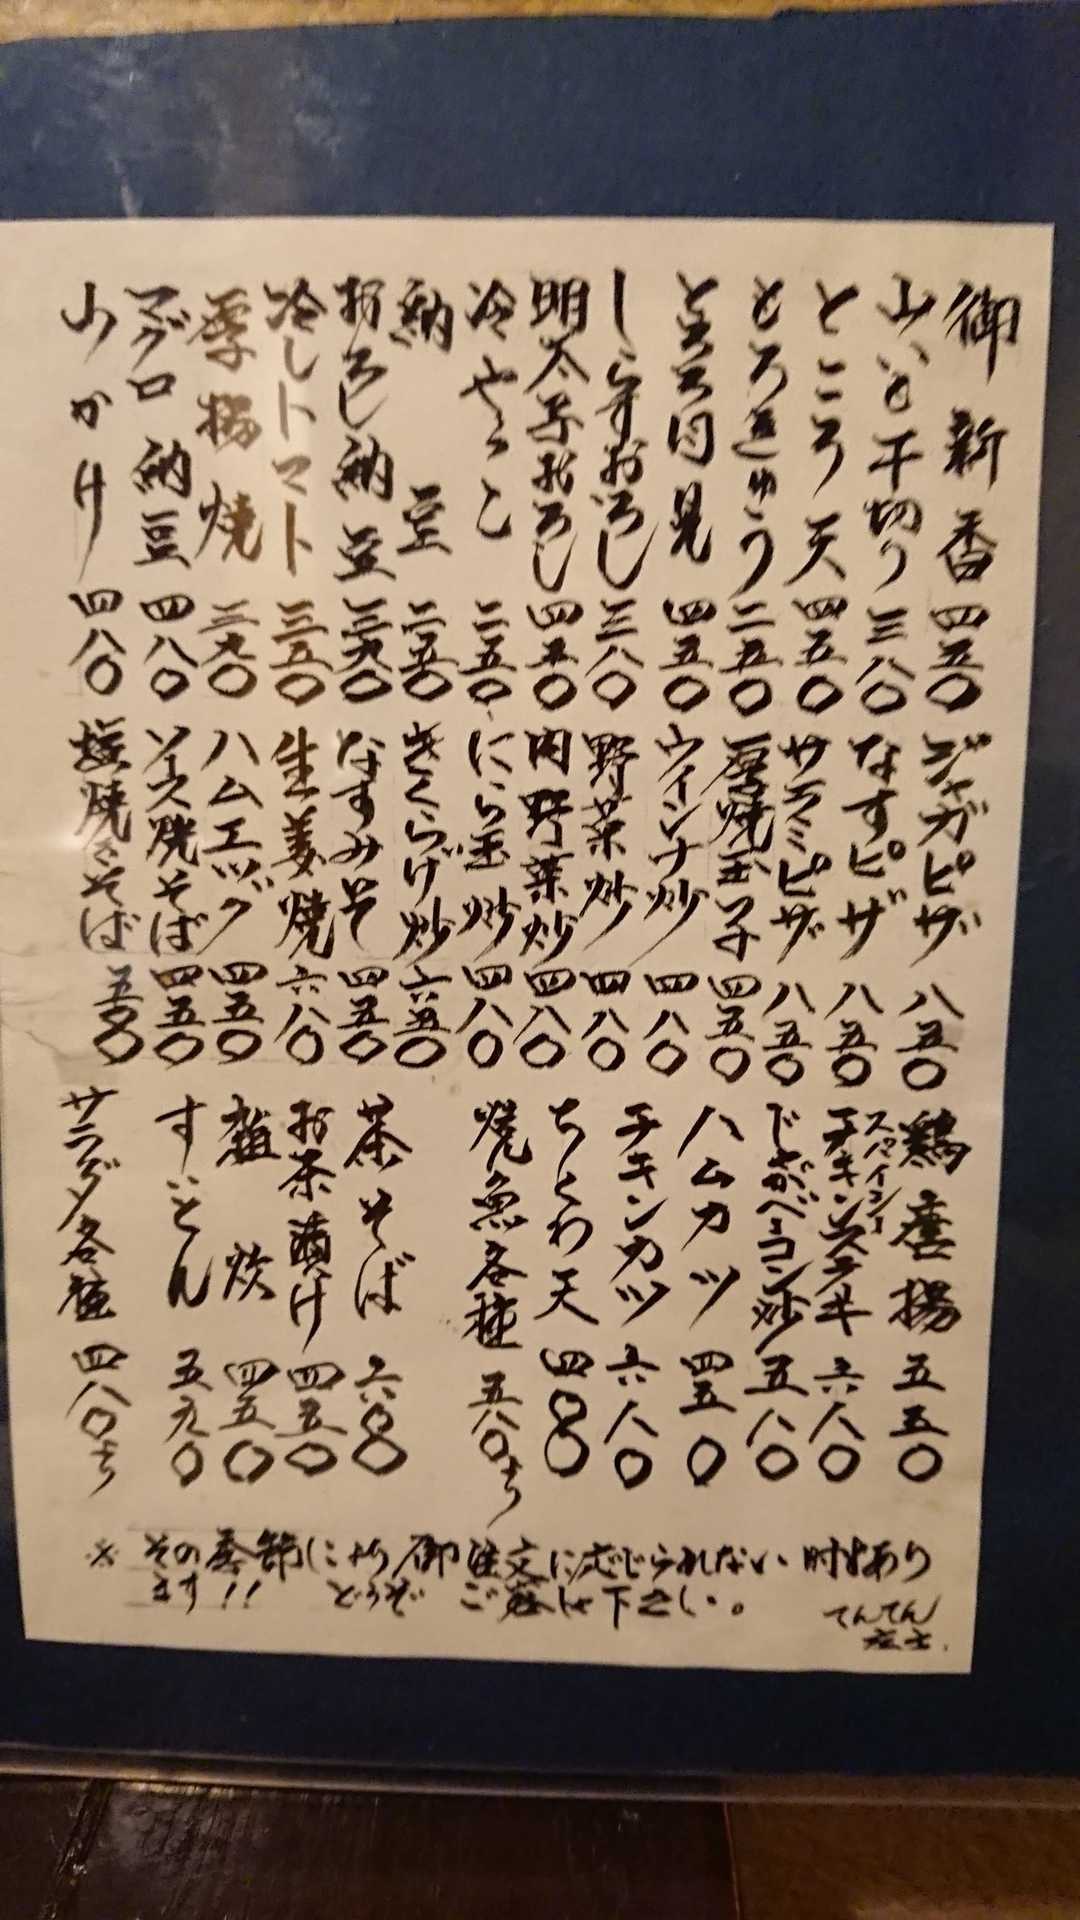 御新香 四五〇
山いも千切り 三八〇
ところ天 四五〇
もろきゅう 二五〇
とろろ月見 四五〇
しらすおろし 三八〇
明太子おろし 四五〇
冷やっこ 二五〇
納豆 二五〇
おろし納豆 三九〇
冷しトマト 三五〇
厚揚焼 三九〇
マグロ納豆 四八〇
山かけ 四八〇
ジャガピザ 八五〇
なすピザ 八五〇
サラミピザ 八五〇
厚焼玉子 四五〇
ウインナ炒 四八〇
野菜炒 四八〇
肉野菜炒 四八〇
にら玉炒 四八〇
きくらげ炒 六五〇
なすみそ 四五〇
生姜焼 六八〇
ハムエッグ 四五〇
ソース焼そば 四五〇
塩焼そば 五〇〇
鶏唐揚 五五〇
スパイシーチキンステーキ 六八〇
じゃがベーコン炒 五八〇
ハムカツ 四五〇
チキンカツ 六八〇
ちくわ天 四〇〇
焼魚各種 五八〇より
茶そば 六〇〇
お茶漬け 四五〇
雑炊 四五〇
すいとん 五九〇
サラダ各種 四八〇より
※その季節により御注文に応じられない時もあり
ます!! どうぞ ご容しゃ下さい。
てんてん
店主.